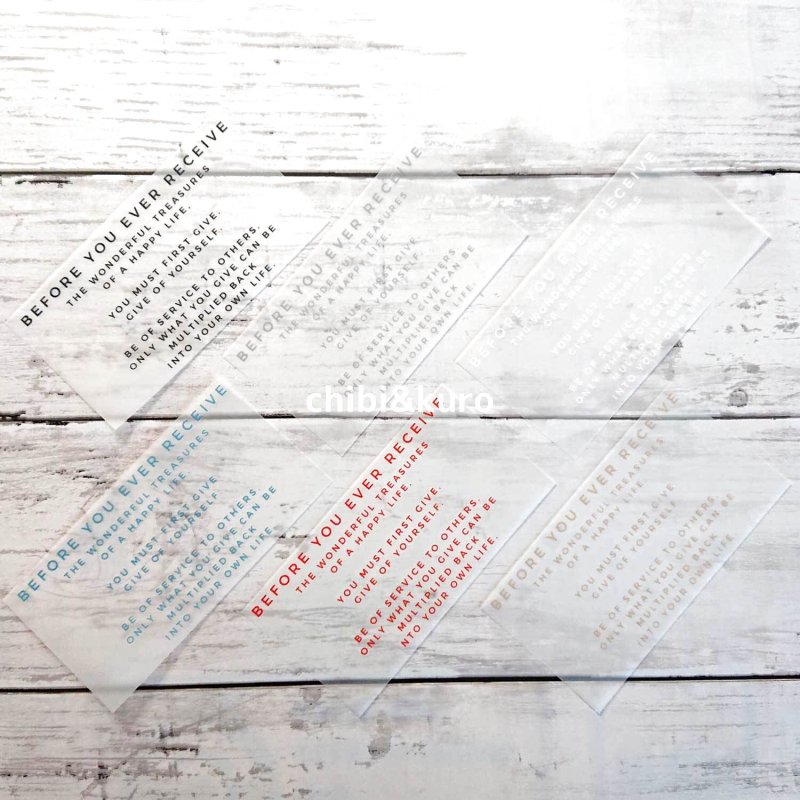 BEFORE YOU EVER RECEIVE
THE WONDERFUL TREASURES
OF A HAPPY LIFE.
YOU MUST FIRST GIVE.
GIVE OF YOURSELF.
BE OF SERVICE TO OTHERS.
ONLY WHAT YOU GIVE CAN BE
MULTIPLIED BACK
INTO YOUR OWN LIFE.
BEFORE YOU EVER RECEIVE
THE WONDERFUL TREASURES
OF A HAPPY LIFE.
YOU MUST FIRST GIVE
GIVE OF YOURSELF.
BE OF SERVICE TO OTHERS
ONLY WHAT YOU GIVE CAN BE
MULTIPLIED BACK
INTO YOUR OWN LIFE.
RECEIVE
BE OF
INTO
chibi&kuro
BEFORE YOU EVER RECEIVE
THE WONDERFUL TREASURES
OF A HAPPY LIFE
YOU MUST FIRST GIVE
GIVE OF YOURSELF
BE OF SERVICE TO OTHERS.
ONLY WHAT YOU GIVE CAN BE
MULTIPLIED BACK
INTO YOUR OWN LIFE.
BEFORE YOU EVER RECEIVE
THE WONDERFUL TREASURES
OF A HAPPY LIFE.
YOU MUST FIRST GIVE.
GIVE OF YOURSELF.
BE OF SERVICE TO OTHERS.
ONLY WHAT YOU GIVE CAN BE
MULTIPLIED BACK
NTO YOUR OWN LIFE.
BEFORE YOU EVER RECEIVE
THE WONDERFUL TREASURES
OF A HAPPY LIFE
YOU MUST FIRST GIVE
GIVE OF YOURSELF
BE OF SERVICE TO OTHERS.
ONLY WHAT YOU GIVE CAN BE
MULTIPLIED BACK
INTO YOUR OWN LIFE